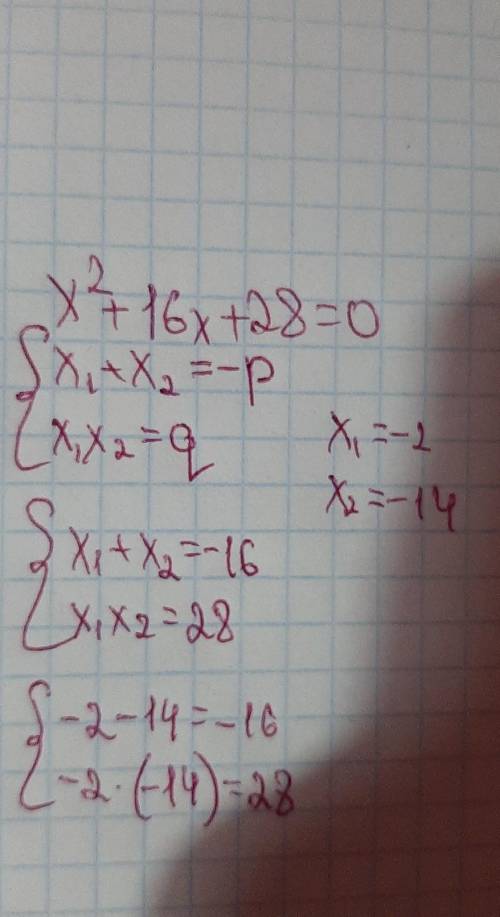 x² + 16x + 28 = 0
{ x₁ + x₂ = -p
x₁x₂ = q
x₁ = -2
x₂ = -14
{ x₁ + x₂ = -16
x₁x₂ = 28
{ -2 - 14 = -16
-2 · (-14) = 28